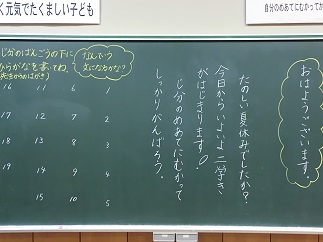 く元気でたくましい子ども
自分のめあてにむかって
おはようございます。
たのしい夏休みでしたか?
今日からいよいよ二学き
がはじまります!
じ分のめあてにむかって
しっかりがんばろう。
なんという
文になるかな?
じ分のばんごうの下に
ひらがなを書いてね。
(先生からのはがき)
1
2
3
4
5
6
7
8
9
10
11
12
13
14
15
16
17
18
19